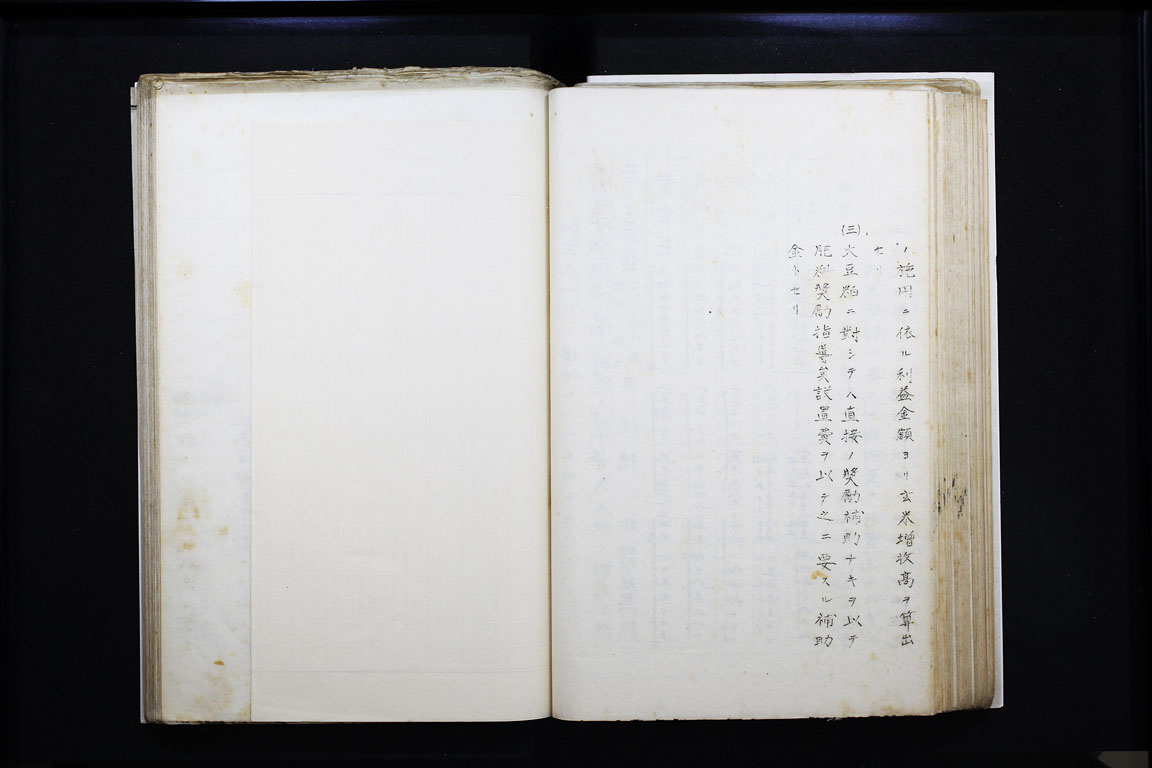 ノ施用ニ依ル利益金額ヨリ玄米増收高ヲ算出
セリ
(三)大豆粕ニ對シテハ直接ノ奬勵補助ナキヲ以テ
肥料奬勵指導員設置費ヲ以テ之ニ要スル補助
金トセリ